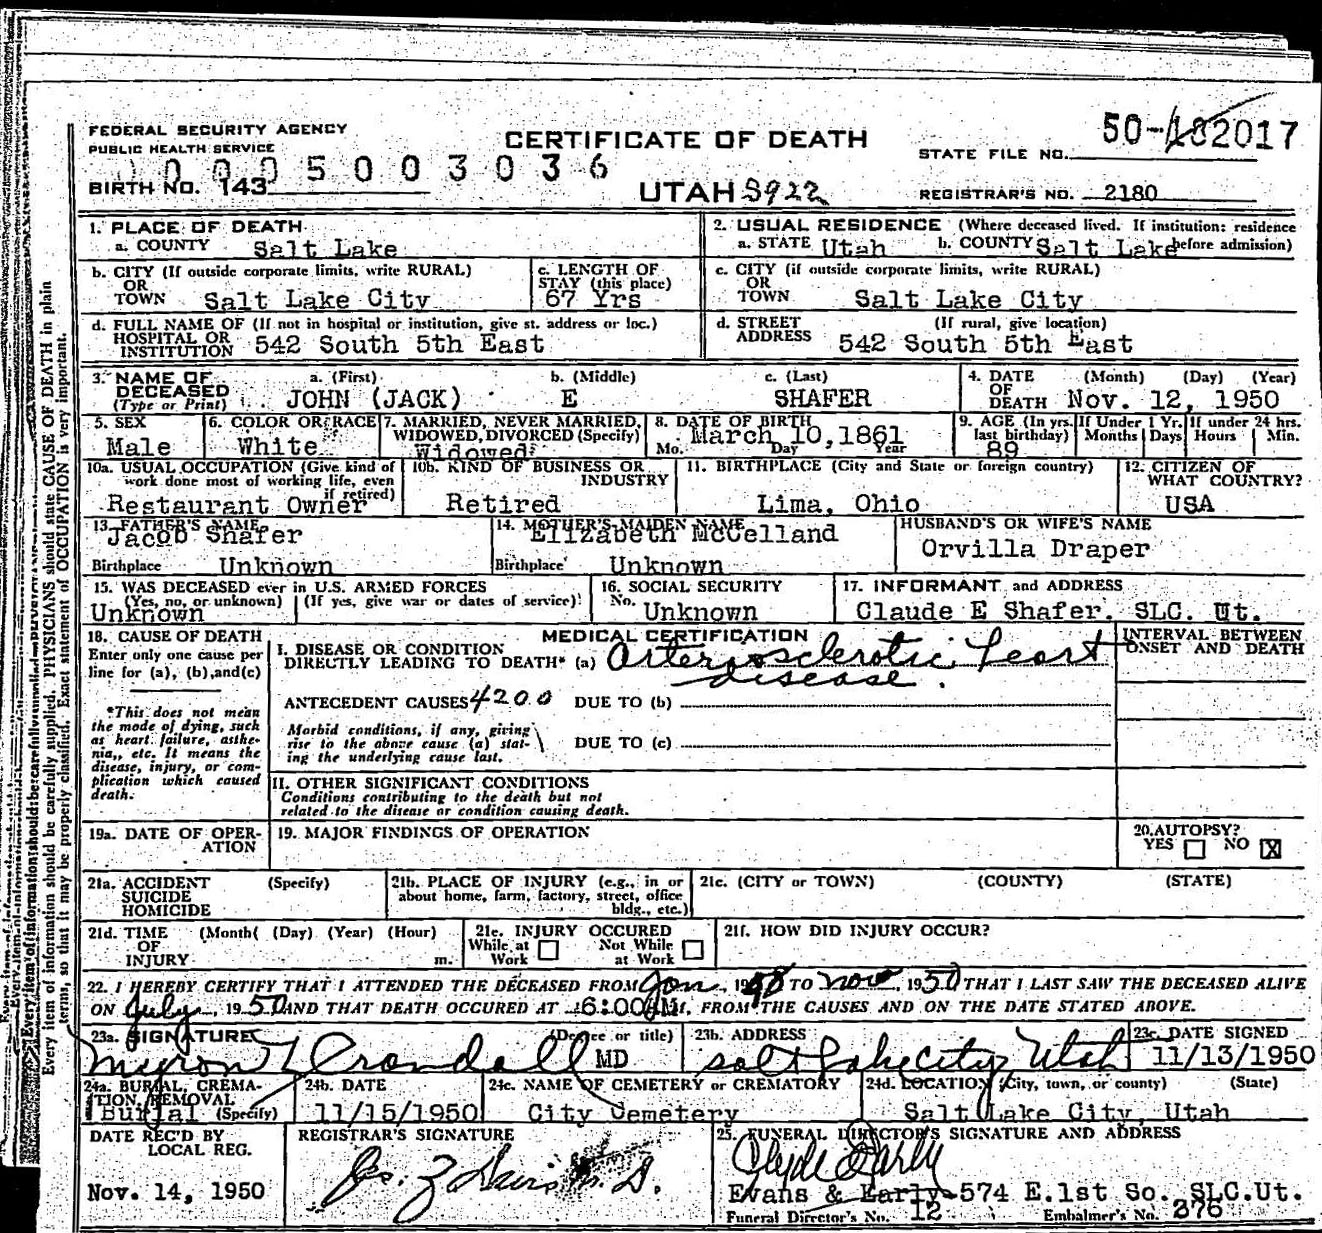 FEDERAL SECURITY AGENCY
PUBLIC HEALTH SERVICE
CERTIFICATE OF DEATH
50-182017
STATE FILE NO.
0 0 0 5 0 0 3 0 3 6
BIRTH NO. 143
UTAH S922
REGISTRAR'S NO. 2180
1. PLACE OF DEATH
a. COUNTY Salt Lake
2. USUAL RESIDENCE (Where deceased lived. If institution: residence before admission)
a. STATE Utah b. COUNTY Salt Lake
b. CITY (If outside corporate limits, write RURAL)
OR
TOWN Salt Lake City
c. LENGTH OF
STAY (this place)
67 Yrs
c. CITY (if outside corporate limits, write RURAL)
OR
TOWN Salt Lake City
d. FULL NAME OF (If not in hospital or institution, give st. address or loc.)
HOSPITAL OR
INSTITUTION 542 South 5th East
d. STREET (If rural, give location)
ADDRESS 542 South 5th East
3. NAME OF DECEASED
(Type or Print)
a. (First) b. (Middle) c. (Last)
JOHN (JACK) E SHAFER
4. DATE OF DEATH (Month) (Day) (Year)
Nov. 12, 1950
5. SEX
Male
6. COLOR OR RACE
White
7. MARRIED, NEVER MARRIED,
WIDOWED, DIVORCED (Specify)
Widowed
8. DATE OF BIRTH
March 10,1861
Mo. Day Year
9. AGE (In yrs.
last birthday)
89
If Under 1 Yr.
Months Days
If under 24 hrs.
Hours Min.
10a. USUAL OCCUPATION (Give kind of
work done most of working life, even
if retired)
Restaurant Owner
10b. KIND OF BUSINESS OR
INDUSTRY
Retired
11. BIRTHPLACE (City and State or foreign country)
Lima, Ohio
12. CITIZEN OF
WHAT COUNTRY?
USA
13. FATHER'S NAME
Jacob Shafer
Birthplace Unknown
14. MOTHER'S MAIDEN NAME
Elizabeth McCelland
Birthplace Unknown
HUSBAND'S OR WIFE'S NAME
Orvilla Draper
15. WAS DECEASED ever in U.S. ARMED FORCES
(Yes, no, or unknown) (If yes, give war or dates of service)
Unknown
16. SOCIAL SECURITY
No. Unknown
17. INFORMANT and ADDRESS
Claude E Shafer, SLC. Ut.
18. CAUSE OF DEATH
Enter only one cause per
line for (a), (b),and(c)
*This does not mean
the mode of dying, such
as heart failure, asthe-
nia, etc. It means the
disease, injury, or com-
plication which caused
death.
MEDICAL CERTIFICATION
I. DISEASE OR CONDITION
DIRECTLY LEADING TO DEATH* (a) Arteriosclerotic heart
disease.
ANTECEDENT CAUSES 4200 DUE TO (b)
Morbid conditions, if any, giving
rise to the above cause (a) stat-
ing the underlying cause last.
DUE TO (c)
II. OTHER SIGNIFICANT CONDITIONS
Conditions contributing to the death but not
related to the disease or condition causing death.
INTERVAL BETWEEN
ONSET AND DEATH
19a. DATE OF OPER-
ATION
19. MAJOR FINDINGS OF OPERATION
20. AUTOPSY?
YES NO X
21a. ACCIDENT (Specify)
SUICIDE
HOMICIDE
21b. PLACE OF INJURY (e.g., in or
about home, farm, factory, street, office
bldg., etc.)
21c. (CITY or TOWN) (COUNTY) (STATE)
21d. TIME (Month( (Day) (Year) (Hour)
OF
INJURY m.
21e. INJURY OCCURED
While at Work Not While at Work
21f. HOW DID INJURY OCCUR?
22. I HEREBY CERTIFY THAT I ATTENDED THE DECEASED FROM Jan, 19 TO Nov, 1950 THAT I LAST SAW THE DECEASED ALIVE
ON July, 1950 AND THAT DEATH OCCURED AT 6:00 M., FROM THE CAUSES AND ON THE DATE STATED ABOVE.
23a. SIGNATURE (Degree or title)
Myron L Crandall MD
23b. ADDRESS
Salt Lake City Utah
23c. DATE SIGNED
11/13/1950
24a. BURIAL, CREMA-
TION, REMOVAL
Burial (Specify)
24b. DATE
11/15/1950
24c. NAME OF CEMETERY or CREMATORY
City Cemetery
24d. LOCATION (City, town, or county) (State)
Salt Lake City, Utah
DATE REC'D BY
LOCAL REG.
Nov. 14, 1950
REGISTRAR'S SIGNATURE
25. FUNERAL DIRECTOR'S SIGNATURE AND ADDRESS
Clyde Early
Evans & Early-574 E.1st So. SLC.Ut.
Funeral Director's No. 12 Embalmer's No. 376
Every item of information should be carefully supplied. PHYSICIANS should state CAUSE OF DEATH in plain
terms, so that it may be properly classified. Exact statement of OCCUPATION is very important.